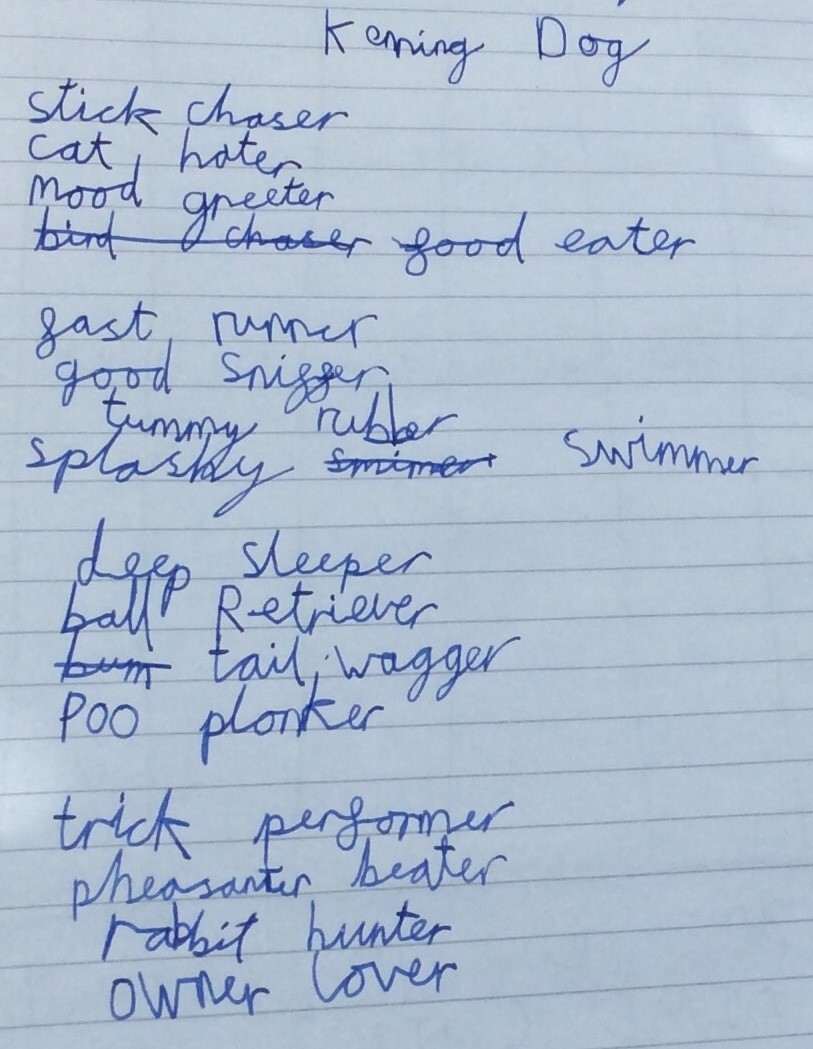 Kenning Dog
stick chaser
cat hater
mood greeter
bird chaser food eater
fast runner
good sniffer
tummy rubber
splashy smimer swimmer
deep sleeper
ball Retriever
bum tail wagger
Poo plonker
trick performer
pheasanter beater
rabbit hunter
owner lover